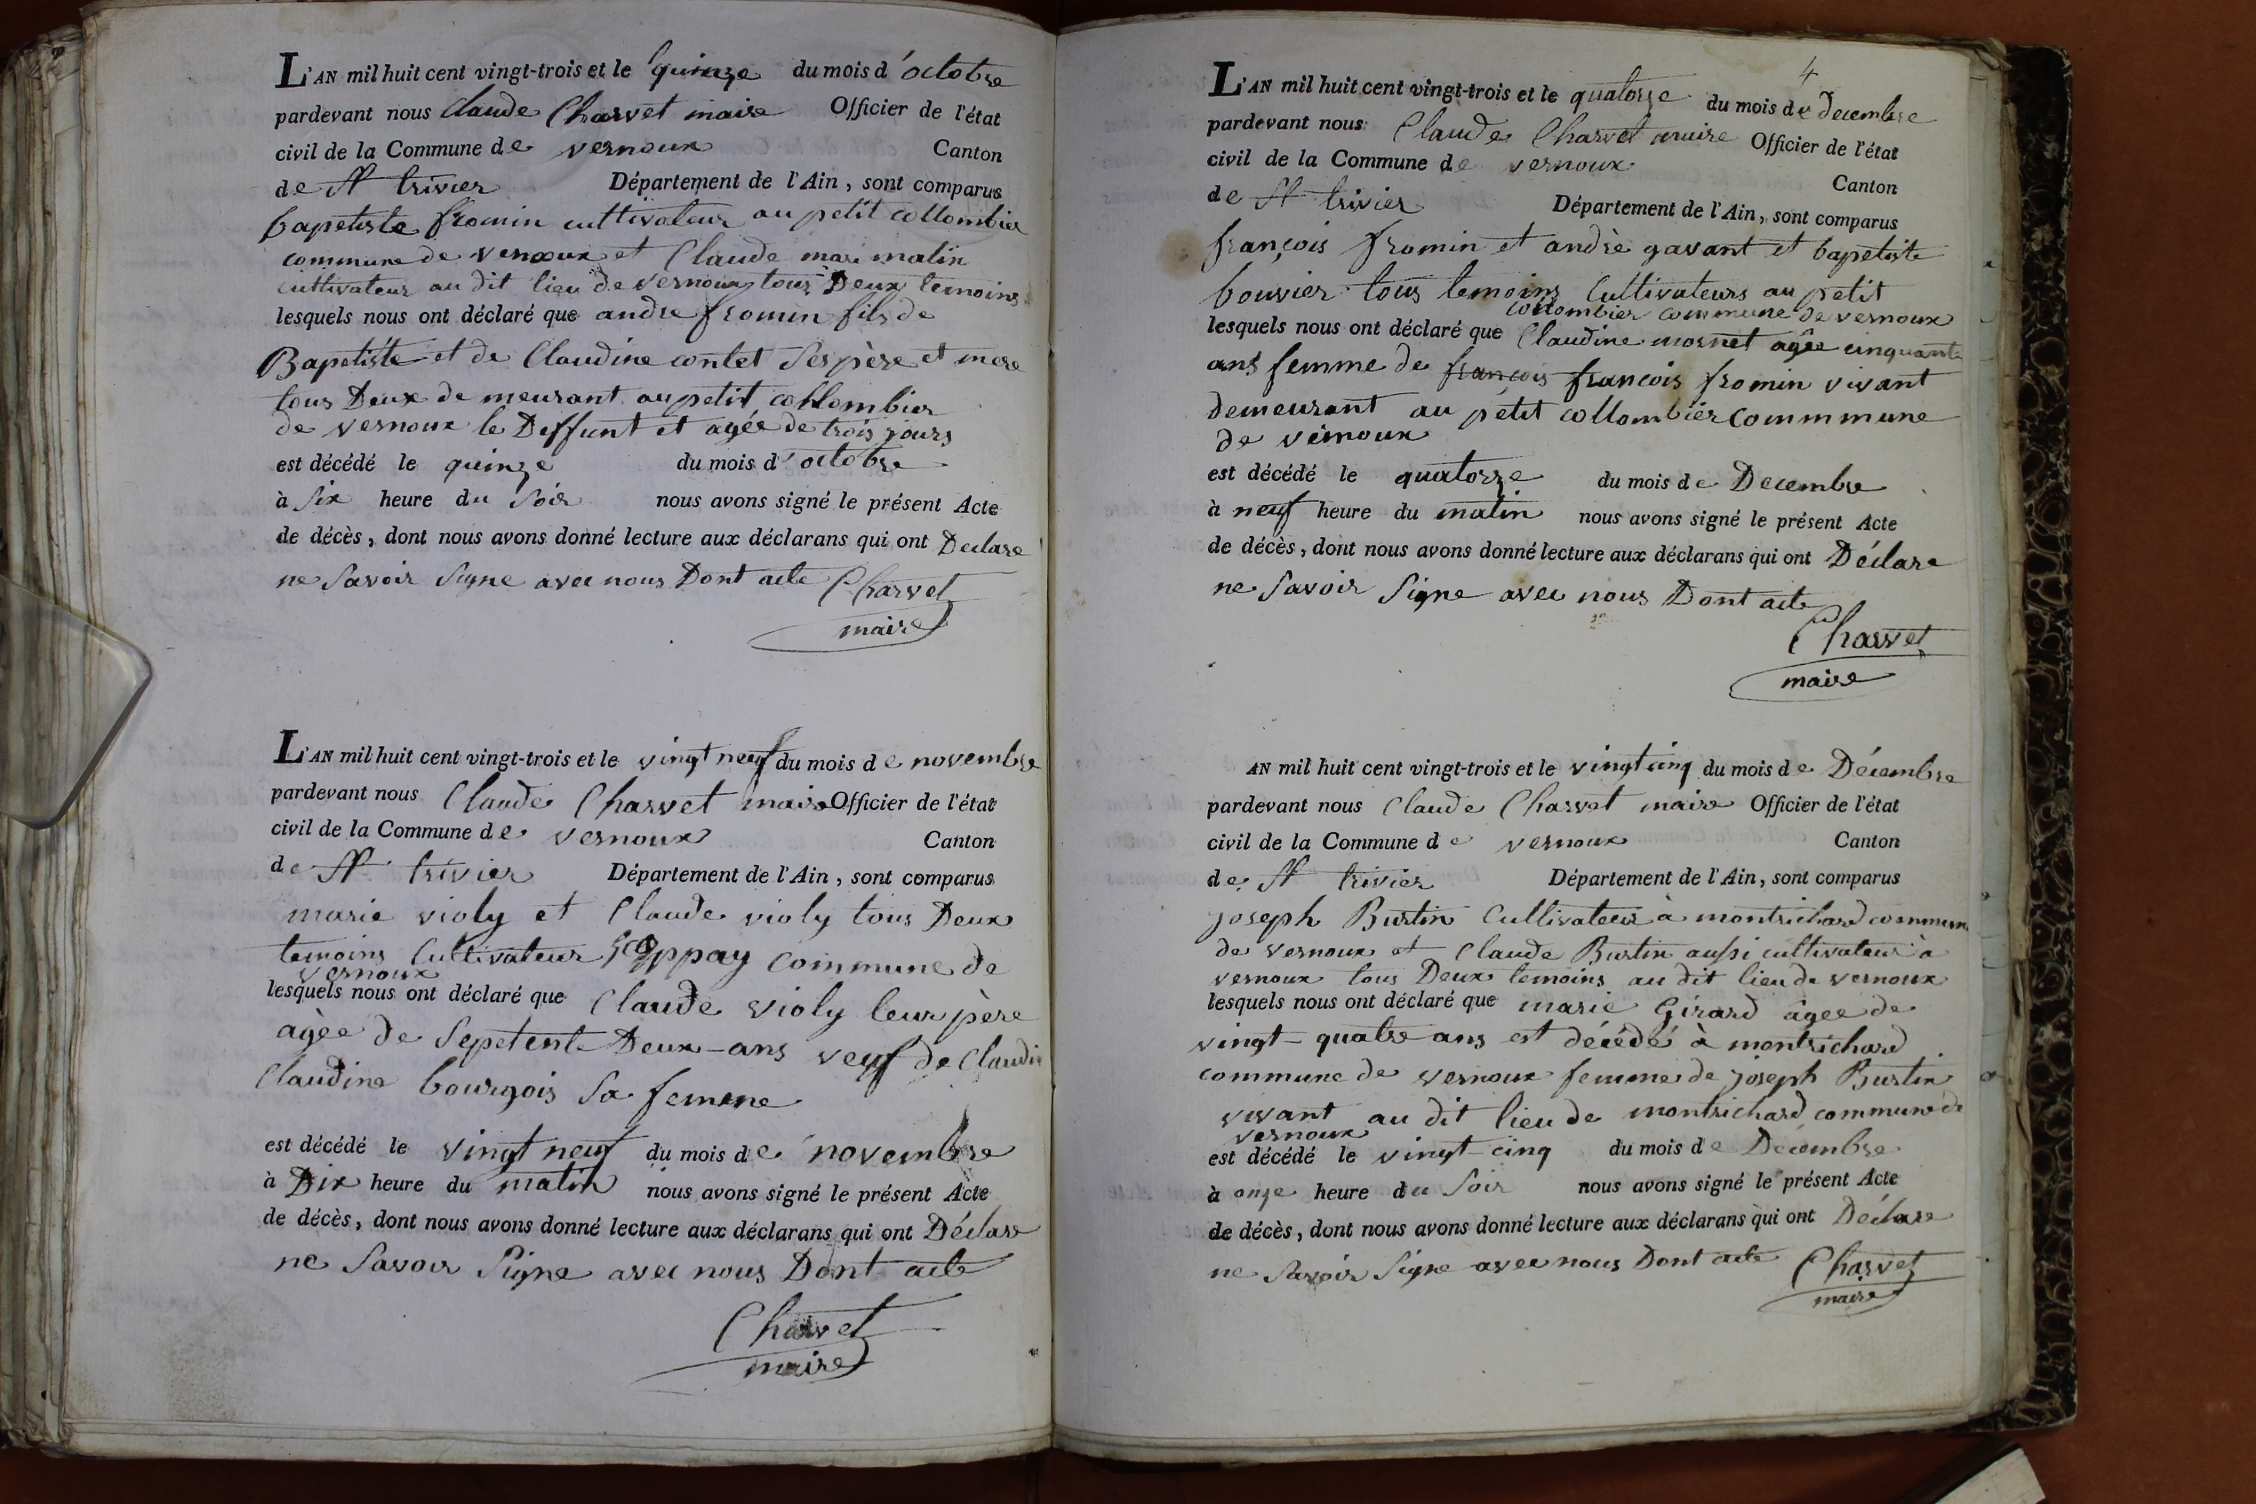 L'AN mil huit cent vingt-trois et le quinze du mois d'octobre
pardevant nous Claude Charvet maire Officier de l'état
civil de la Commune de vernoux Canton
de St trivier Département de l'Ain, sont comparus
bapetiste fromin cultivateur au petit collombier
commune de vernoux et Claude mari matin
cultivateur au dit lieu de vernoux tous Deux temoins
lesquels nous ont déclaré que andre fromin fils de
Bapetiste et de Claudine contet Ses père et mere
tous Deux de meurant au petit collombier
de vernoux le Deffunt et agée de trois jours
est décédé le quinze du mois d'octobre
à Six heure du Soir nous avons signé le présent Acte
de décès, dont nous avons donné lecture aux déclarans qui ont Declare
ne Savoir Signe avec nous Dont acte Charvet
maire
L'AN mil huit cent vingt-trois et le vingt neuf du mois de novembre
pardevant nous Claude Charvet maire Officier de l'état
civil de la Commune de vernoux Canton
de St trivier Département de l'Ain, sont comparus
marie violy et Claude violy tous Deux
temoins Cultivateur commune de
vernoux
lesquels nous ont déclaré que Claude violy leur père
agèe de Sepetente Deux-ans veuf de Claudi
Claudine bourgois Sa femme
est décédé le vingt neuf du mois de novembre
à Dix heure du matin nous avons signé le présent Acte
de décès, dont nous avons donné lecture aux déclarans qui ont Déclare
ne Savoir Signe avec nous Dont acte
Charvet
maire
4
L'AN mil huit cent vingt-trois et le quatorze du mois de Decembre
pardevant nous Claude Charvet maire Officier de l'état
civil de la Commune de vernoux Canton
de St trivier Département de l'Ain, sont comparus
françois fromin et andrè gavant et bapetiste
bouvier tous temoins Cultivateurs au petit
collombier commune de vernoux
lesquels nous ont déclaré que Claudine mornet agée cinquante
ans femme de françois françois fromin vivant
demeurant au pètit collombier commmune
de vernoux
est décédé le quatorze du mois de Decembre
à neuf heure du matin nous avons signé le présent Acte
de décès, dont nous avons donné lecture aux déclarans qui ont Déclare
ne Savoir Signe avec nous Dont acte
Charvet
maire
AN mil huit cent vingt-trois et le vingt cinq du mois de Décembre
pardevant nous Claude Charvet maire Officier de l'état
civil de la Commune de vernoux Canton
de St trivier Département de l'Ain, sont comparus
joseph Burtin Cultivateur à montrichard commune
de vernoux et Claude Burtin aussi cultivateur à
vernoux tous Deux temoins au dit lieu de vernoux
lesquels nous ont déclaré que marie Girard âgee de
vingt-quatre ans est décédé à montrichard
commune de vernoux femme de joseph Burtin
vivant au dit lieu de montrichard commune de
vernoux
est décédé le vingt-cinq du mois de Décembre
à onze heure du Soir nous avons signé le présent Acte
de décès, dont nous avons donné lecture aux déclarans qui ont Déclare
ne Savoir Signe avec nous Dont acte Charvet
maire